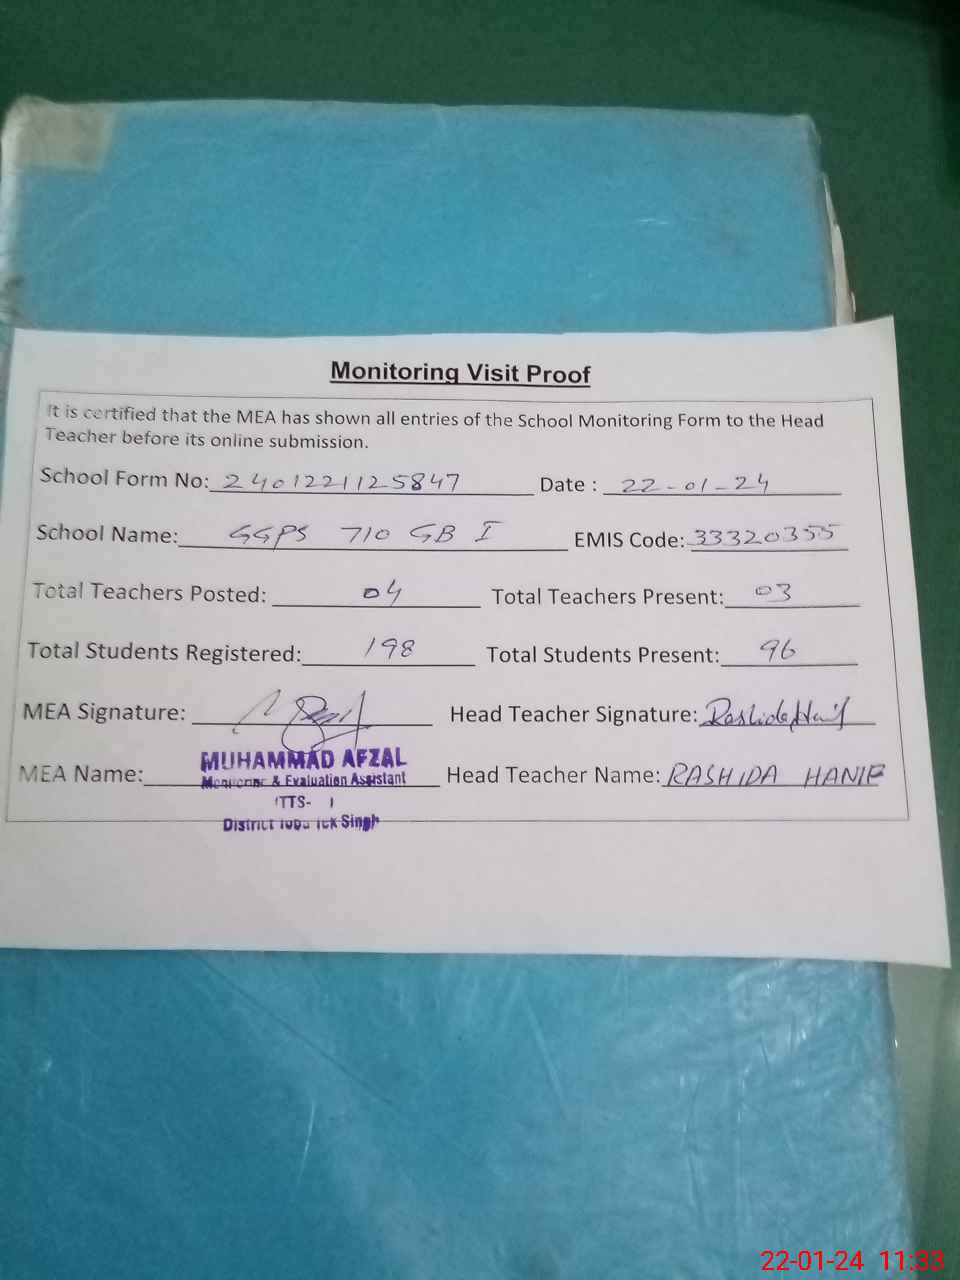 Monitoring Visit Proof
It is certified that the MEA has shown all entries of the School Monitoring Form to the Head
Teacher before its online submission.
School Form No: 2401221125847 Date : 22-01-24
School Name: GGPS 710 GB I EMIS Code: 33320355
Total Teachers Posted: 04 Total Teachers Present: 03
Total Students Registered: 198 Total Students Present: 96
MEA Signature: Head Teacher Signature: Rashida Hanif
MUHAMMAD AFZAL
MEA Name: Monitoring & Evaluation Assistant Head Teacher Name: RASHIDA HANIF
TTS-
District Toba Tek Singh
22-01-24 11:33